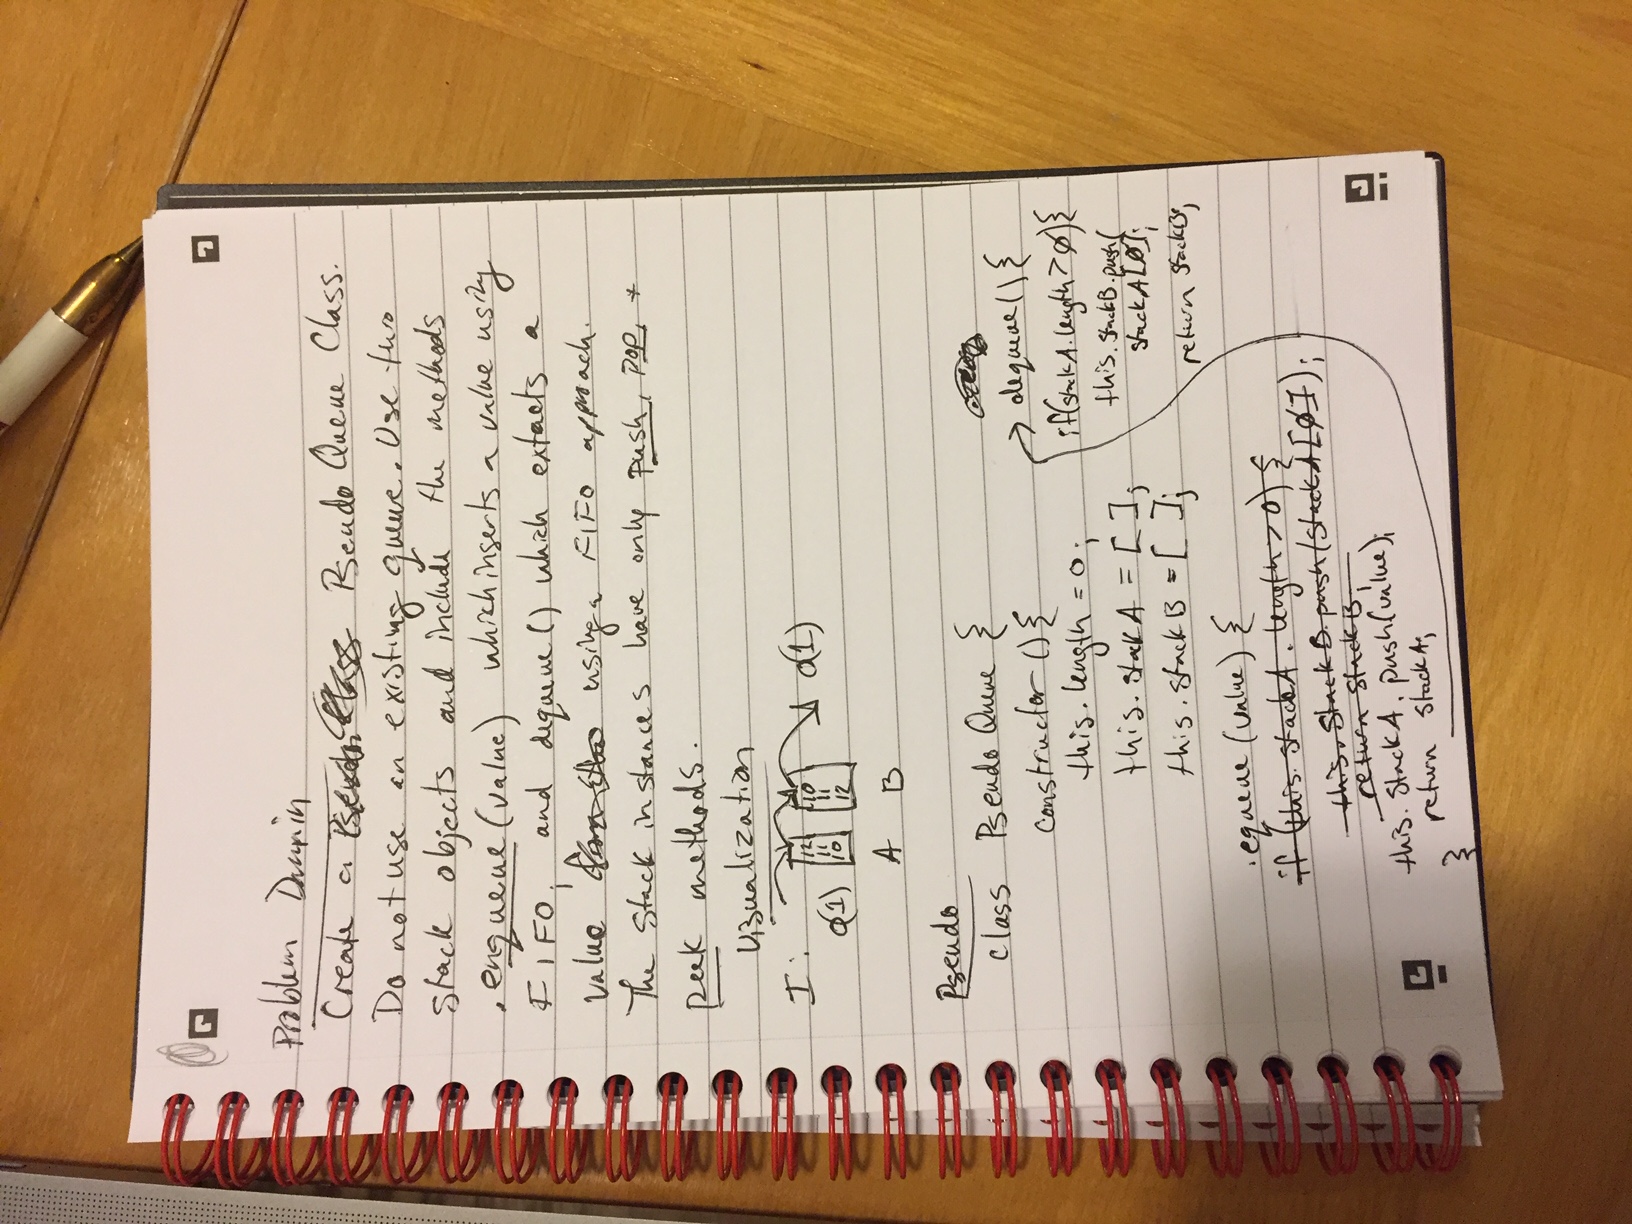 Problem Domain
Create a Pseudo Class Pseudo Queue Class.
Do not use an existing queue. Use two
stack objects and include the methods
.enqueue(value) which inserts a value using
FIFO, and dequeue() which extracts a
value using a FIFO approach.
The stack instances have only push, pop, +
peek methods.
Visualization
I:
O(1)
12
11
10
10
11
12
O(1)
A B
Pseudo
class Pseudo Queue {
constructor () {
this.length = 0;
this.stackA = [ ];
this.stackB = [ ];
.equeue (value) {
if (this.stackA.length > 0) {
this.stackB.push(stackA[0]);
return stackB;
this.stackA.push(value);
return stackA;
}
dequeue() {
if(stackA.length > 0) {
this.stackB.push(
stackA[0];
return stackB;